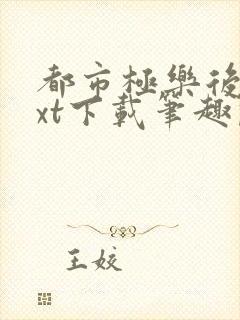 都市極樂後
xt下載筆趣
王姣